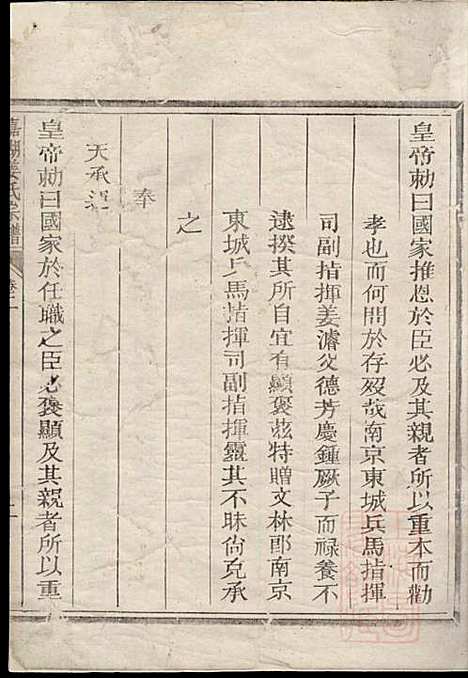 皇帝勅曰國家推恩於臣必及其親者所以重本而勸
孝也而何問於存殁哉南京東城兵馬指揮
司副指揮姜濬父德芳慶鍾厥子而祿養不
逮揆其所自宜有顯褒茲特贈文林郎南京
東城兵馬指揮司副指揮靈其不昧尚克承
之
奉
天承運
皇帝勅曰國家於任職之臣必褒顯及其親者所以重
姜氏宗譜